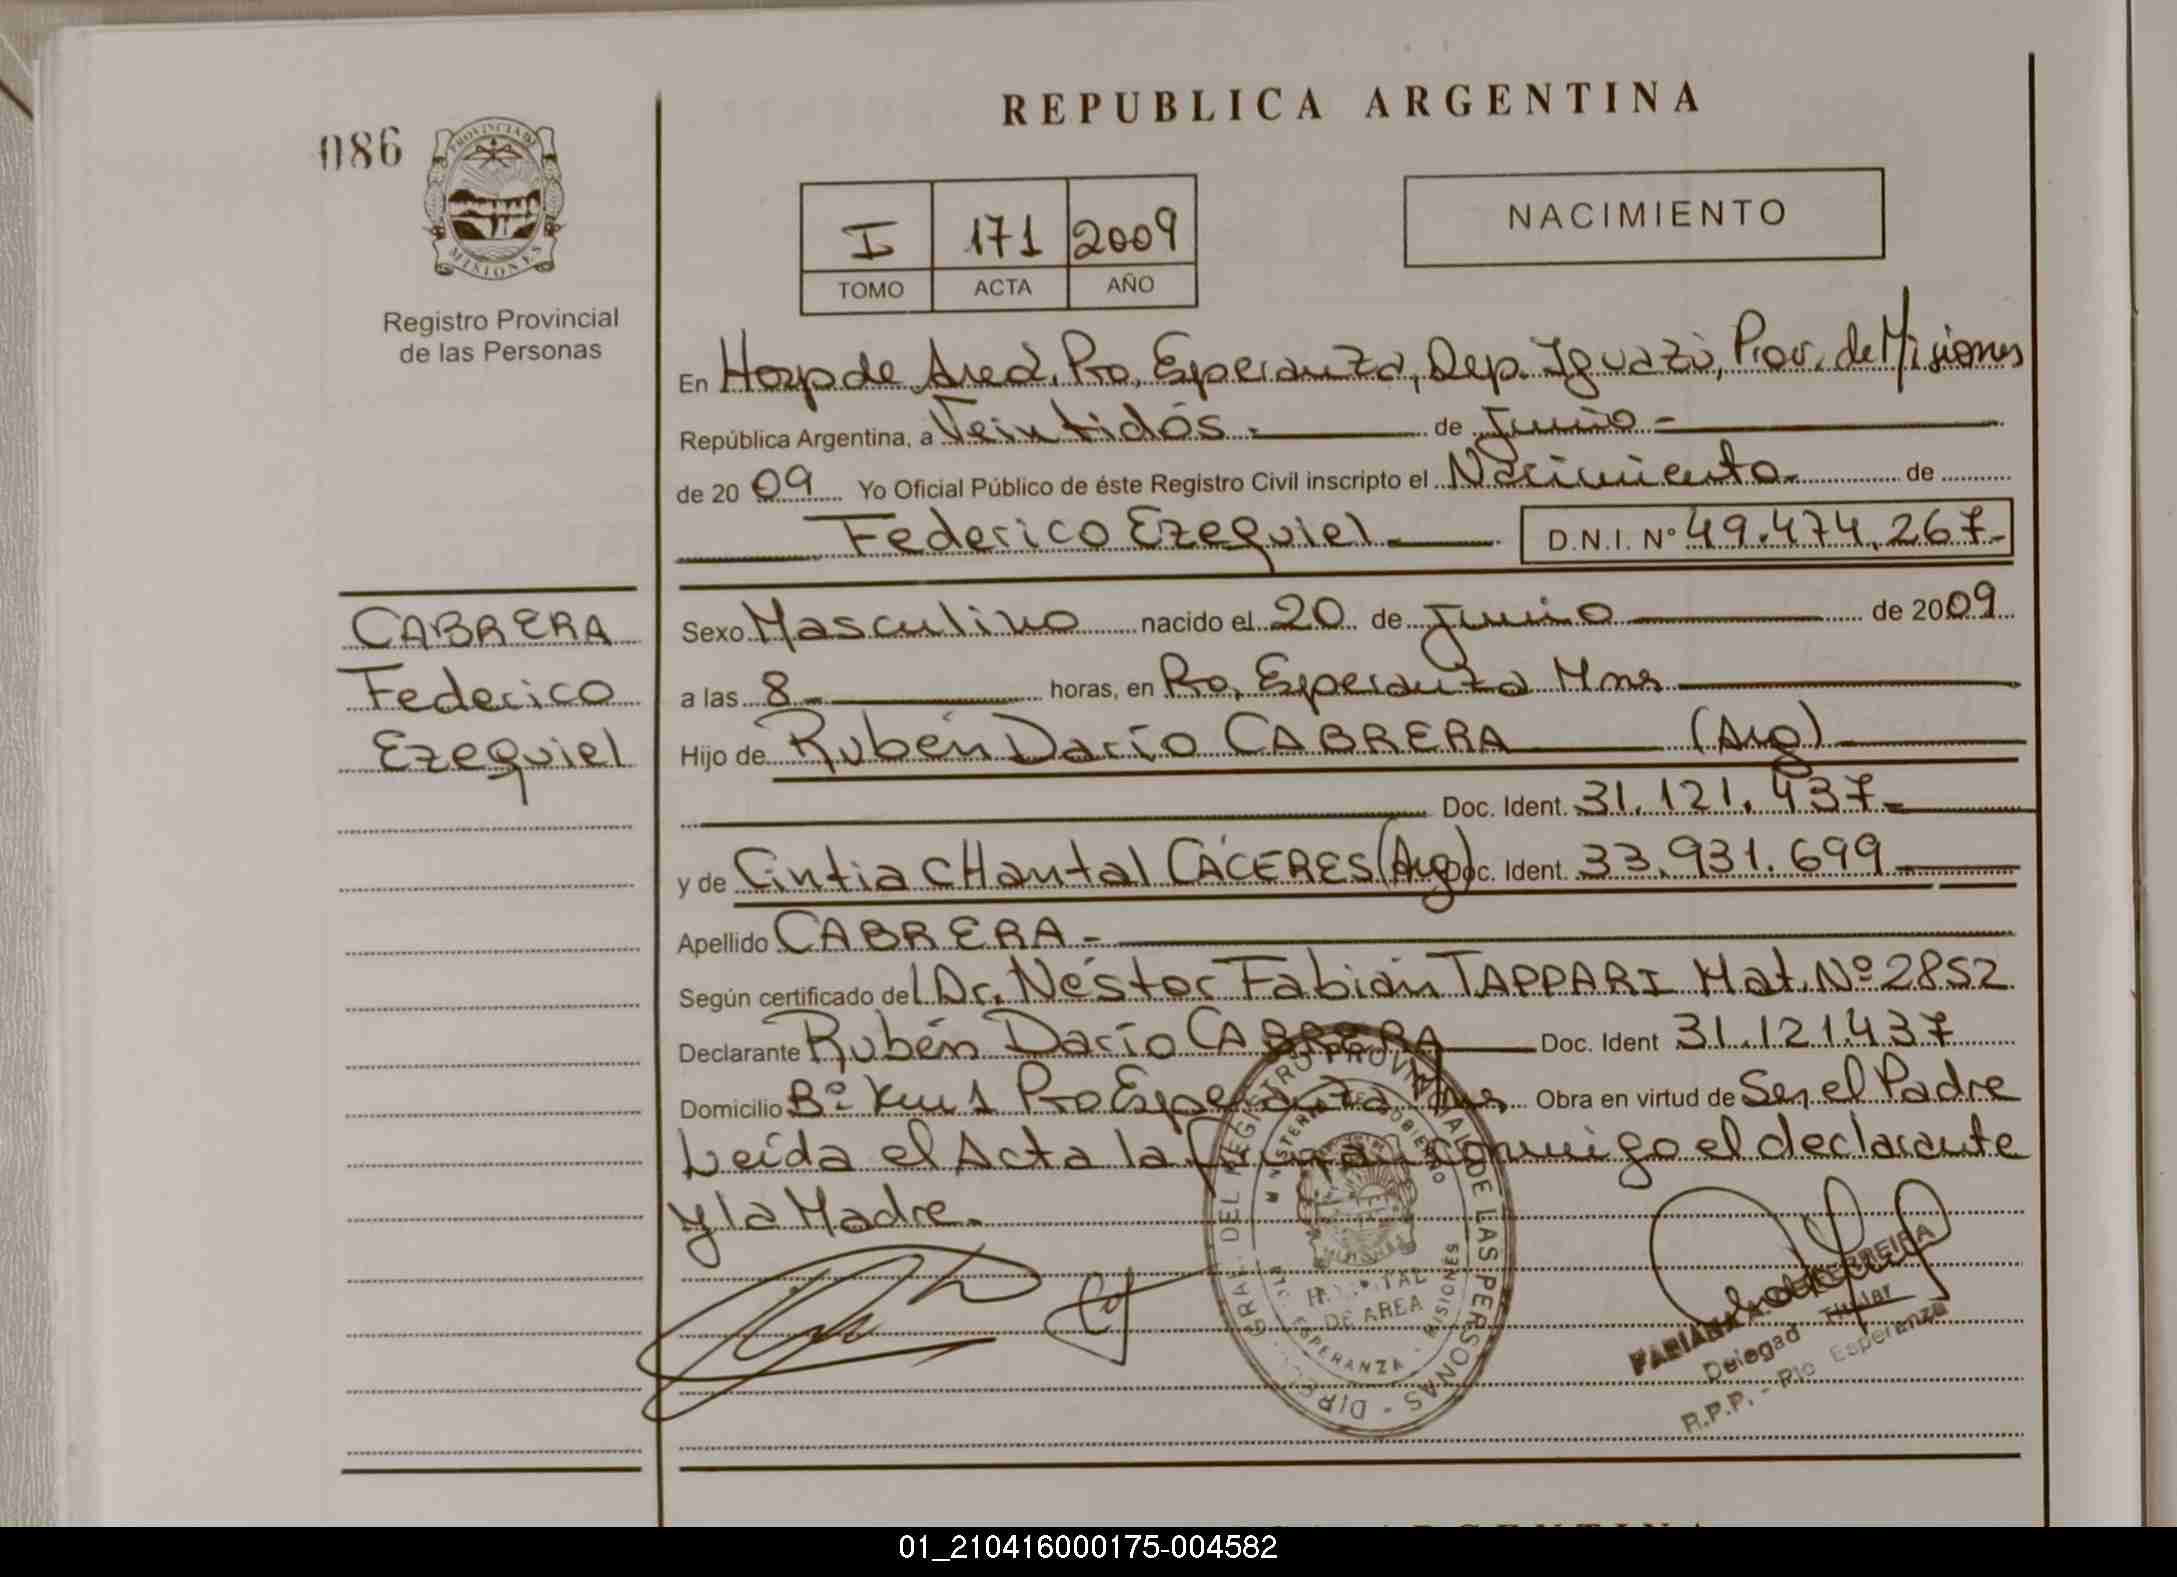 REPUBLICA ARGENTINA
086
PROVINCIA DE
MISIONES
Registro Provincial
de las Personas
I 171 2009
TOMO ACTA AÑO
NACIMIENTO
En Hosp de Area, Pto. Esperanza, Dep. Iguazú, Prov. de Misiones
República Argentina, a Veintidós.- de Junio.-
de 2009 Yo Oficial Público de éste Registro Civil inscripto el Nacimiento de
Federico Ezequiel.- D.N.I. N° 49.474.267.-
CABRERA
Federico
Ezequiel
Sexo Masculino nacido el 20 de Junio de 2009
a las 8 horas, en Pto. Esperanza Mnes
Hijo de Rubén Darío CABRERA (Arg)
Doc. Ident. 31.121.437.-
y de Cintia CHantal CÁCERES (Arg) Doc. Ident. 33.931.699
Apellido CABRERA.-
Según certificado del Dr. Néstor Fabián TAPPARI Mat. Nº 2852
Declarante Rubén Darío CABRERA Doc. Ident 31.121.437
Domicilio Bº Km 1 Pto Esperanza Mns Obra en virtud de Ser el Padre
Leída el Acta la firman conmigo el declarante
y la Madre.
DIR. GRAL. DEL REGISTRO PROVINCIAL DE LAS PERSONAS -
MINISTERIO DE GOBIERNO
MISIONES
HOSPITAL
DE AREA
ESPERANZA - MISIONES
FABIANA
Delegad Titular
R.P.P. - Pto Esperanza
01_210416000175-004582